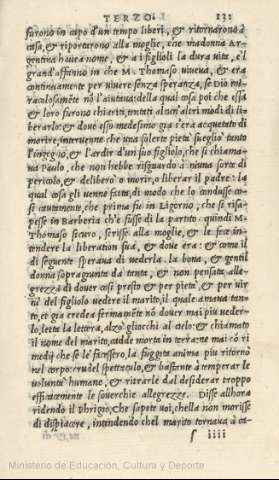 TERZO. 132
furono in capo d'un tempo liberi, & ritornarono à
casa, & riportarono alla moglie, che madonna Ar-
gentina hauea nome, & a i figlioli la dura uita, e'l
grand'affanno in che M. Thomaso uiueua, & era
continuamente per uiuere senza speranza, se Dio mi-
racolosamẽte nõ l'aiutaua: della qual cosa poi che essa
& loro furono chiariti, tentati alcun'altri modi di li-
berarlo: & doue esso medesimo gia s'era acquetato di
morire, interuenne che una solerte pieta sueglio tanto
l'ingegno, & l'ardir d'un suo figliuolo, che si chiama-
ua Paulo, che non hebbe risguardo à niuna sorte di
pericolo, & deliberò o morir, o liberar il padre: la
qual cosa gli uenne fatta, di modo che lo condusse co-
si cautamente, che prima fu in Ligorno, che si risa-
pesse in Barberia ch'e fusse di la partito. quindi M.
Thomaso sicuro, scrisse alla moglie, & le fece in-
tendere la liberation sua, & doue era: & come il
di seguente speraua di uederla. la bona, & gentil
donna sopragiunta da tanta, & non pensata alle-
grezza di douer cosi presto & per pieta, & per uir
tu del figliolo uedere il marito, il quale amaua tan-
to, et gia credea fermamẽte nõ douer mai piu ueder-
lo, letta la lettera, alzò gliocchi al cielo: & chiamato
il nome del marito, cadde morta in terra; ne mai cõ ri
medij che se le facessero, la fuggita anima piu ritornò
nel corpo: crudel spettacolo, & bastante à temperar le
uoluntà humane, & ritrarle dal desiderar troppo
efficacemente le souerchie allegrezze. Disse allhora
ridendo il Phrigio, Che sapete uoi, ch'ella non morisse
di dispiacere, intendendo che'l marito tornaua à ca-
s iiii
Ministerio de Educación, Cultura y Deporte